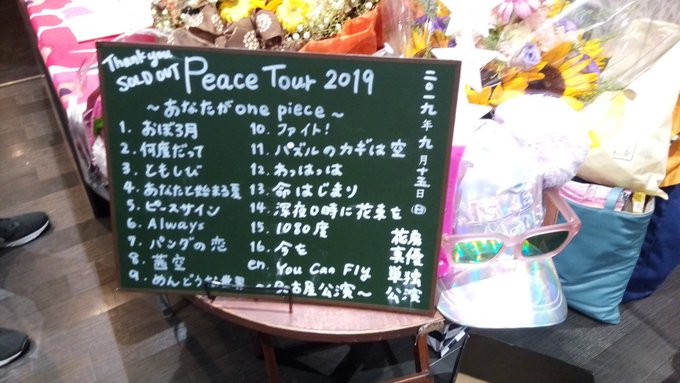 Thank you
SOLD OUT
Peace Tour 2019
~あなたがone piece~
1. おぼろ月
2. 何度だって
3. ともしび
4. あなたと始まる夏
5. ピースサイン
6. Always
7. パンダの恋
8. 茜空
9. めんどうな世界
10. ファイト!
11. パズルのカギは空
12. わっはっは
13. 命はじまり
14. 深夜0時に花束を
15. 1080度
16. 今を
en. You Can Fly
~名古屋公演~
二〇一九年九月十五日(日)
花鳥
真優
単独
公演